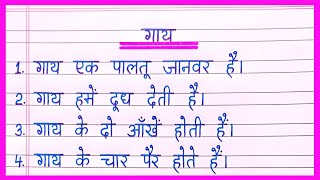 गाय
1. गाय एक पालतू जानवर है।
2. गाय हमें दूध देती है।
3. गाय के दो आँखें होती हैं।
4. गाय के चार पैर होते हैं।